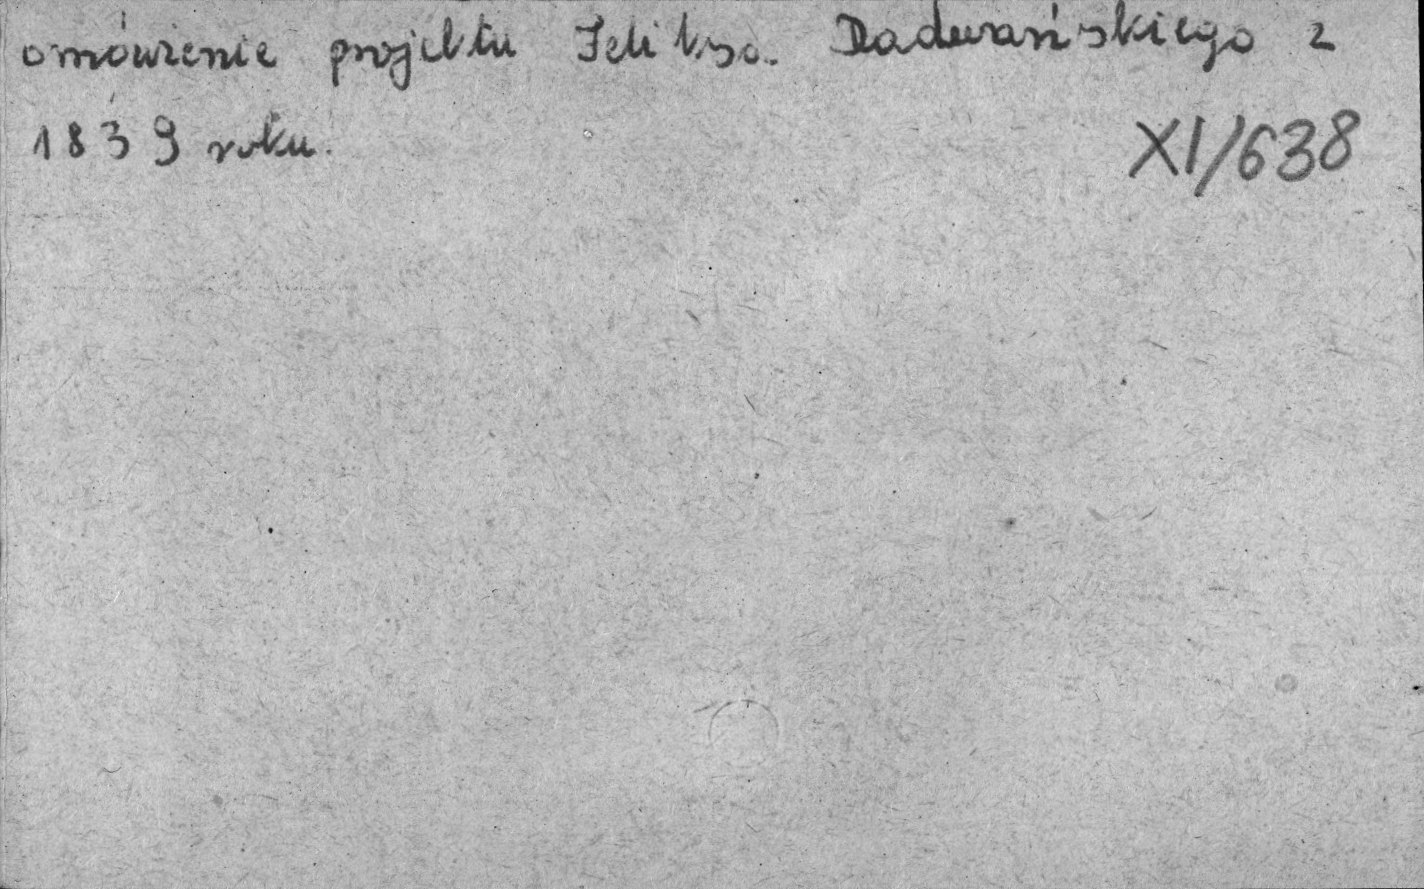 omówienie projektu Feliksa Radwańskiego z
1839 roku.
XI/638